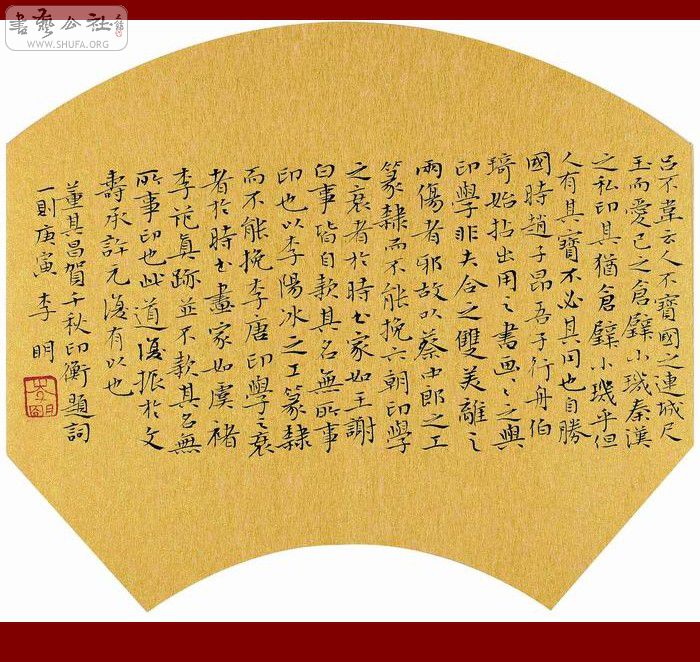 書藝公社
WWW.SHUFA.ORG
呂不韋云人不寶國之連城尺
玉而愛己之倉璧小璣秦漢
之私印其猶倉璧小璣乎但
人有其寶不必其同也自勝
國時趙子昂吾子行舟伯
琦始拈出用之書画〻之與
印學非夫合之雙美離之
兩傷者邪故以蔡中郎之工
篆隸而不能挽六朝印學
之衰者於時書家如王謝
白事皆自款其名無所事
印也以李陽冰之工篆隸
而不能挽李唐印學之衰
者於時書畫家如虞褚
李范真跡並不款其名無
所事印也此道復振於文
壽承許元復有以也
董其昌賀千秋印衡題詞
一則庚寅 李明